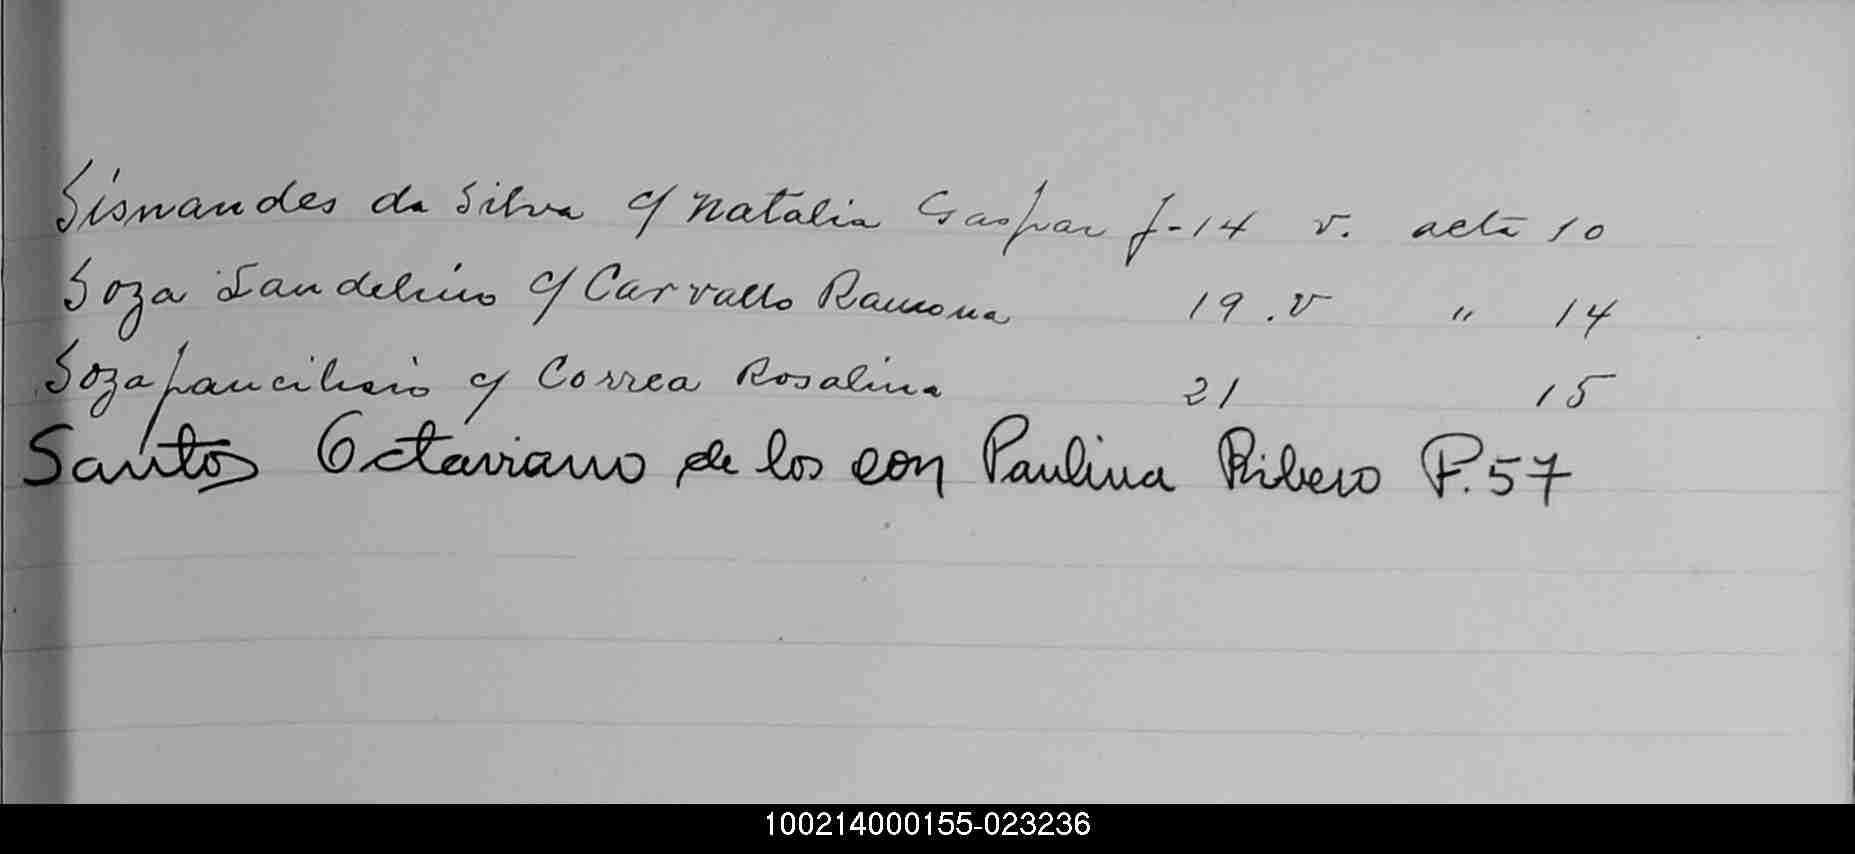 Sisnandes da Silva c/ Natalia Gaspar f-14 v. acta 10
Soza Landelino c/ Carvallo Ramona 19 .v " 14
Soza c/ Correa Rosalina 21 15
Santos Octaviano de los con Paulina Ribero F. 57
100214000155-023236